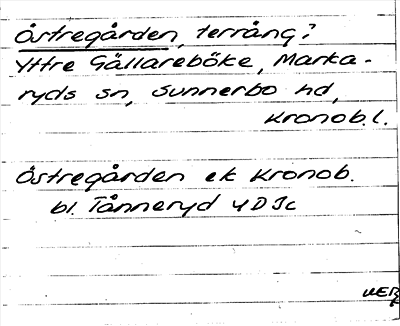 Östregården, terräng?
Yttre Gällareböke, Marka-
ryds sn, Sunnerbo hd,
Kronob. l.
Östregården ek Kronob.
bl. Tånneryd 4D5c